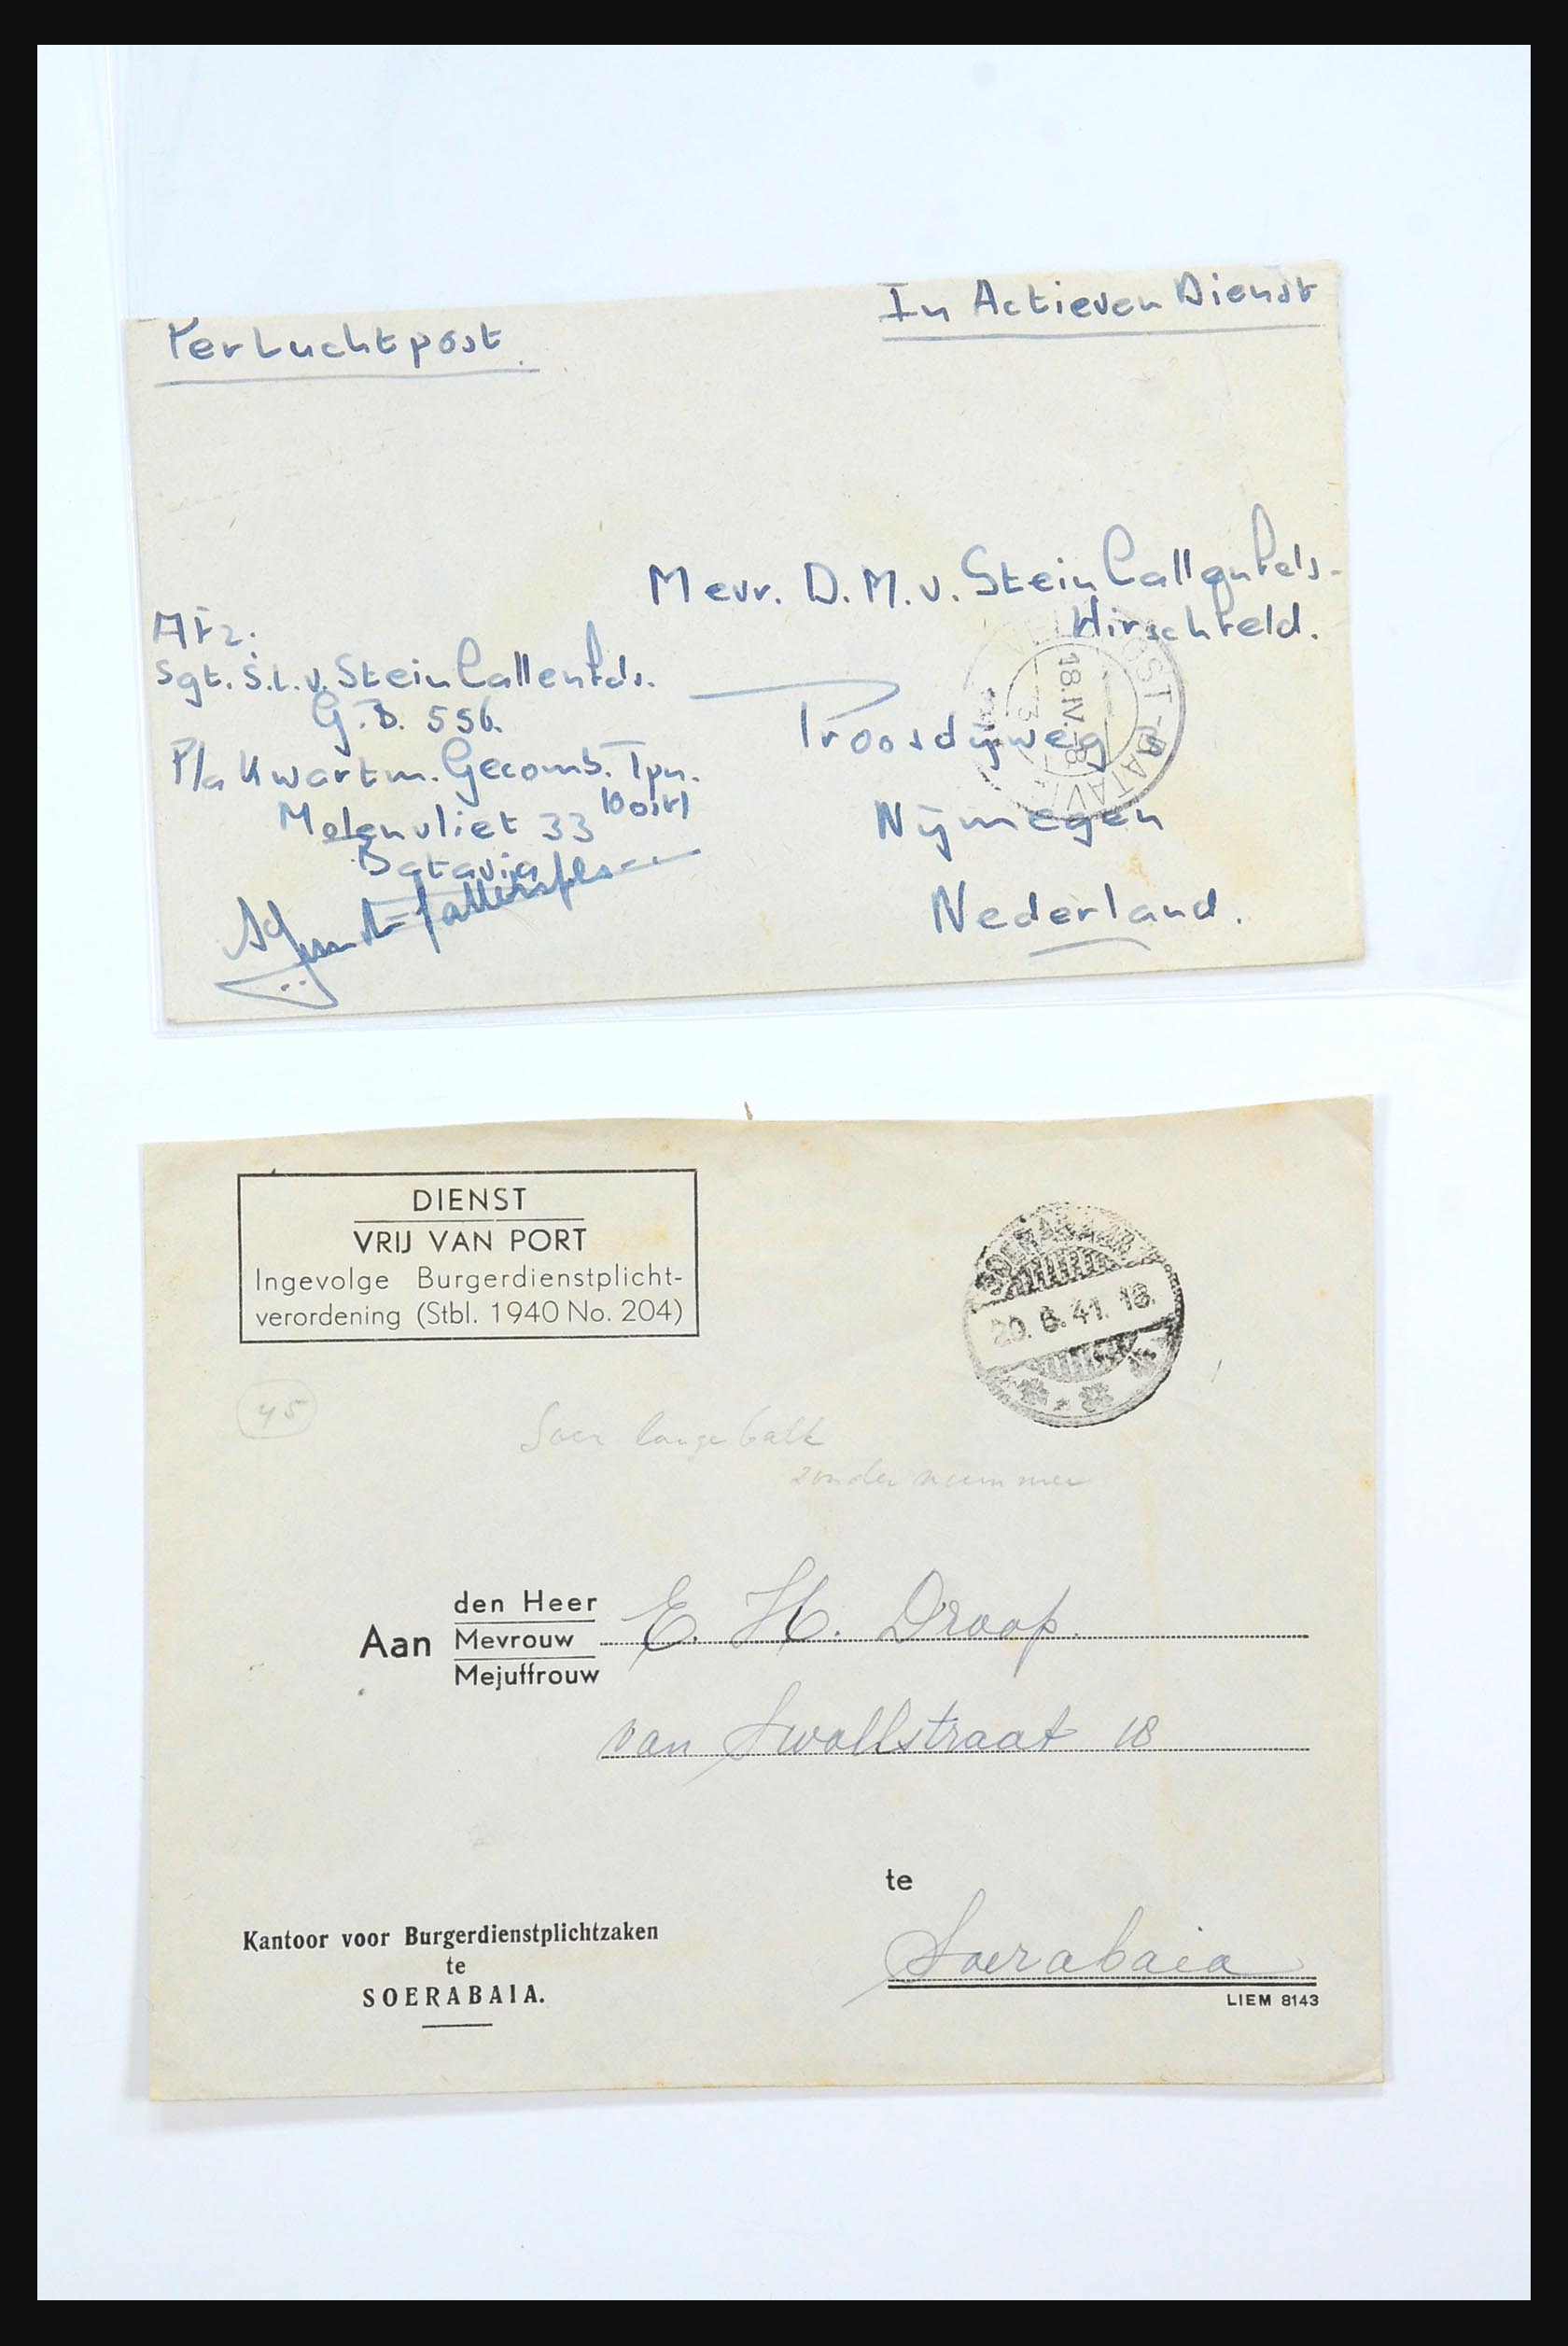 Per Luchtpost
In Actieven Dienst
Mevr. D. M. v. Stein Callenfels-
Hirschfeld.
Afz.
Sgt. S.L. v. Stein Callenfels.
G.B. 556
P/a Kwartm. Gecomb. Tpn.
Molenvliet 33 (Oost)
Batavia
Proosdijweg 8
Nijmegen
Nederland.
18.IV. 8
3
DIENST
VRIJ VAN PORT
Ingevolge Burgerdienstplicht-
verordening (Stbl. 1940 No. 204)
SOERABAIA
20. 6. 41. 18.
45
Soer lange balk
zonder nummer
den Heer
Aan Mevrouw E. H. Droop.
Mejuffrouw
van Swollstraat 18
te
Soerabaia
Kantoor voor Burgerdienstplichtzaken
te
SOERABAIA.
LIEM 8143